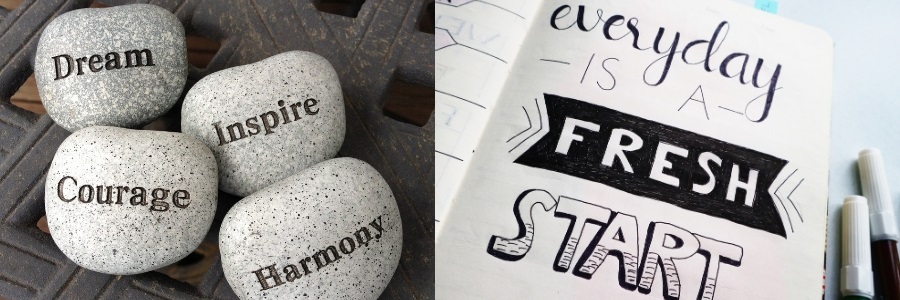 Dream
Inspire
Courage
Harmony
everyday
IS A
FRESH
START